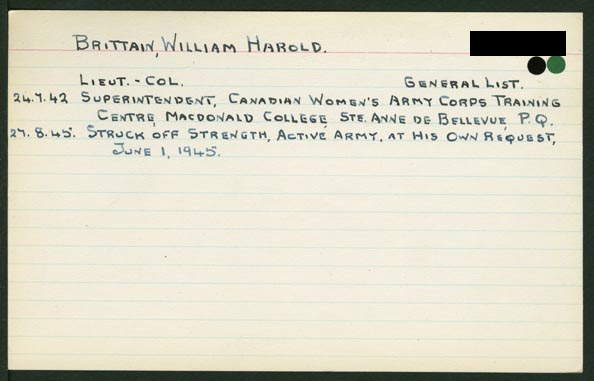 BRITTAIN, WILLIAM HAROLD.
LIEUT. - COL. GENERAL LIST.
24.7.42 SUPERINTENDENT, CANADIAN WOMEN'S ARMY CORPS TRAINING
CENTRE, MACDONALD COLLEGE, STE. ANNE DE BELLEVUE, P.Q.
27.8.45. STRUCK OFF STRENGTH, ACTIVE ARMY, AT HIS OWN REQUEST,
JUNE 1, 1945.